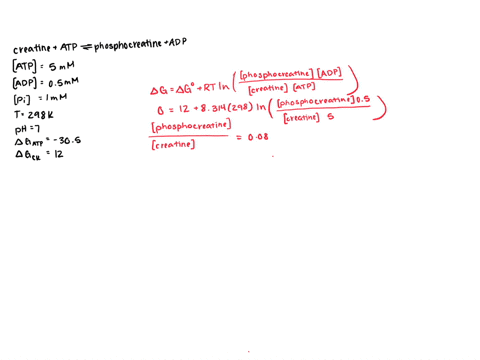 creatine + ATP ⇌ phosphocreatine + ADP
[ATP] = 5 mM
[ADP] = 0.5 mM
[Pi] = 1 mM
T = 298 K
pH = 7
ΔG ATP = -30.5
ΔG CK = 12
ΔG = ΔG° + RT ln ( [phosphocreatine] [ADP] / [creatine] [ATP] )
0 = 12 + 8.314 (298) ln ( [phosphocreatine] 0.5 / [creatine] 5 )
[phosphocreatine] / [creatine] = 0.08